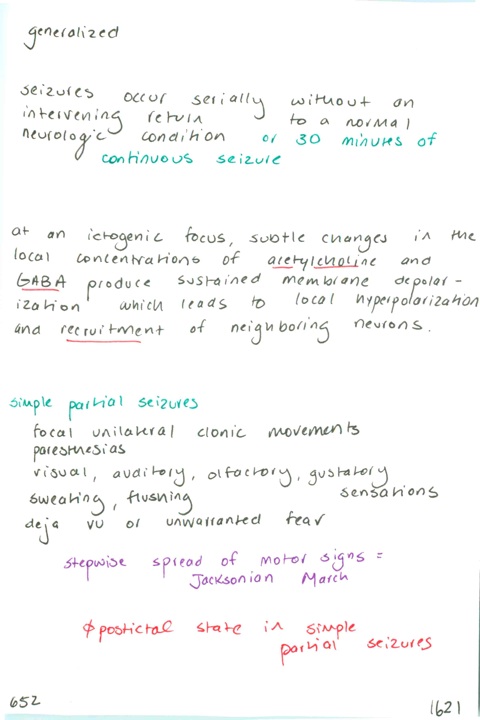 generalized
seizures occur serially without an
intervening return to a normal
neurologic condition or 30 minutes of
continuous seizure
at an ictogenic focus, subtle changes in the
local concentrations of acetylcholine and
GABA produce sustained membrane depolar-
ization which leads to local hyperpolarization
and recruitment of neighboring neurons.
simple partial seizures
focal unilateral clonic movements
paresthesias
visual, auditory, olfactory, gustatory
sweating, flushing sensations
deja vu or unwarranted fear
stepwise spread of motor signs =
Jacksonian March
φ postictal state in simple
partial seizures
652
1621